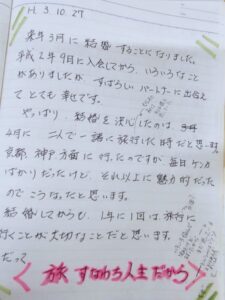 H.3.10.27
来年3月に結婚することになりました。
平成2年9月に入会してから、いろいろなこと
がありましたが、すばらしいパートナーに出会え
てとても幸せです。
やっぱり、結婚を決心したのは、
4月に二人で一緒に旅行した時だと思います。
京都、神戸方面に行ったのですが毎日ケンカ
ばかりだったけど、それ以上に魅力的だった
のでこうなったと思います。
結婚してからも、1年に1回は旅行に
行くことが大切なことだと思います。
だって
旅すなわち人生だから